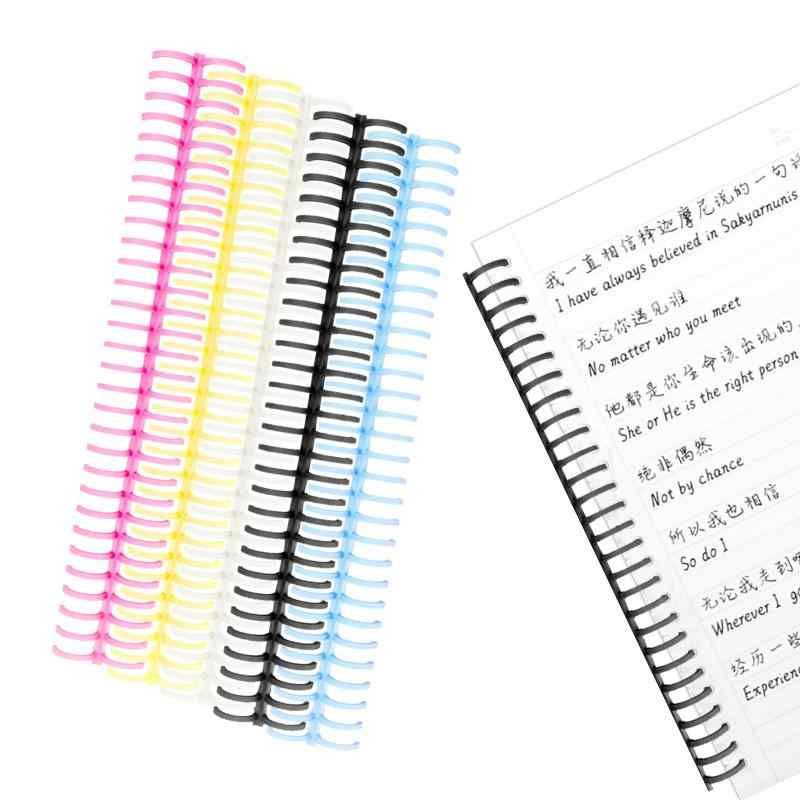 我一直相信释迦摩尼说的一句
I have always believed in Sakyarnunis
无论你遇见谁
No matter who you meet
他都是你生命该出现的
She or He is the right person
绝非偶然
Not by chance
所以我也相信
So do I
无论我走到
Wherever I go
经历一些
Experienc